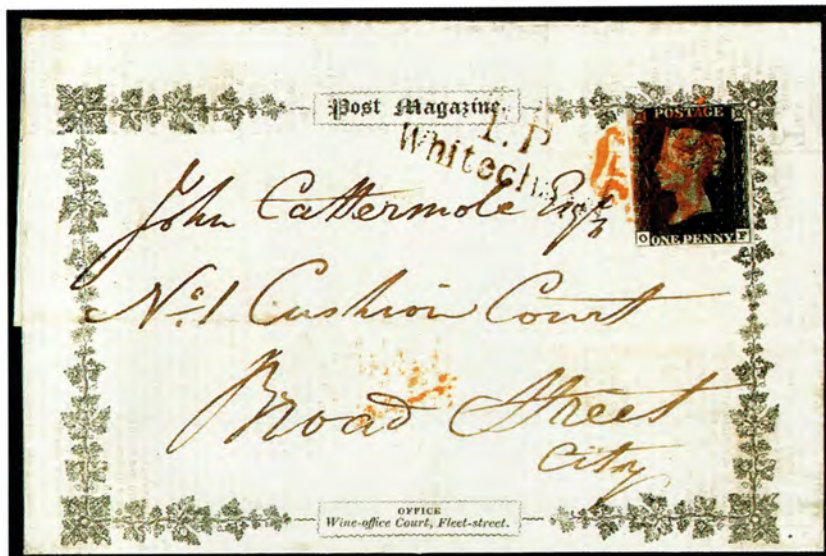 Post Magazine.
T.P
Whitech
POSTAGE
O ONE PENNY F
John Cattermole Esqr
No. 1 Cushion Court
Broad Street
City
OFFICE
Wine-office Court, Fleet-street.